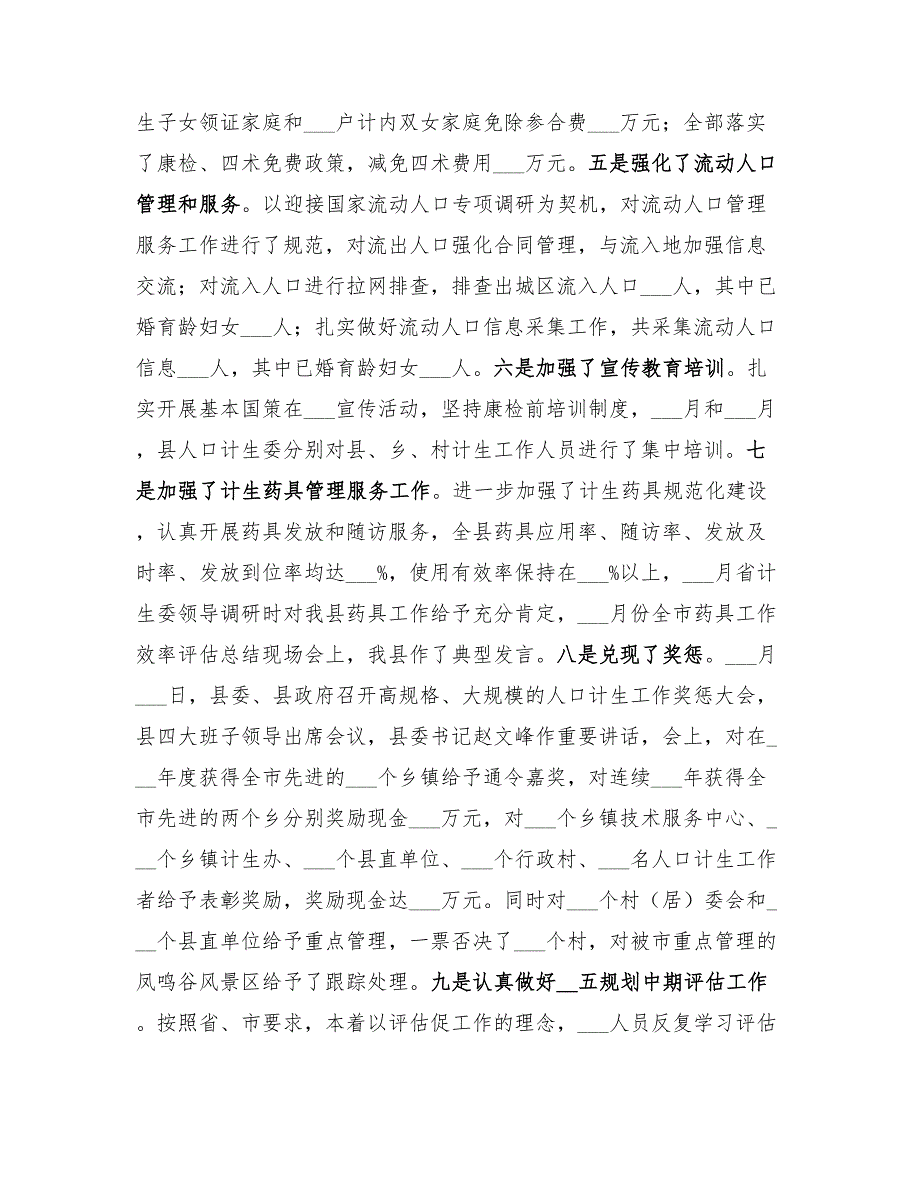 生子女领证家庭和___户计内双女家庭免除参合费___万元；全部落实
了康检、四术免费政策，减免四术费用___万元。五是强化了流动人口
管理和服务。以迎接国家流动人口专项调研为契机，对流动人口管理
服务工作进行了规范，对流出人口强化合同管理，与流入地加强信息
交流；对流入人口进行拉网排查，排查出城区流入人口___人，其中已
婚育龄妇女___人；扎实做好流动人口信息采集工作，共采集流动人口
信息___人，其中已婚育龄妇女___人。六是加强了宣传教育培训。扎
实开展基本国策在___宣传活动，坚持康检前培训制度，___月和___月
，县人口计生委分别对县、乡、村计生工作人员进行了集中培训。七
是加强了计生药具管理服务工作。进一步加强了计生药具规范化建设
，认真开展药具发放和随访服务，全县药具应用率、随访率、发放及
时率、发放到位率均达___%，使用有效率保持在___%以上，___月省计
生委领导调研时对我县药具工作给予充分肯定，___月份全市药具工作
效率评估总结现场会上，我县作了典型发言。八是兑现了奖惩。___月
___日，县委、县政府召开高规格、大规模的人口计生工作奖惩大会，
县四大班子领导出席会议，县委书记赵文峰作重要讲话，会上，对在_
__年度获得全市先进的___个乡镇给予通令嘉奖，对连续___年获得全
市先进的两个乡分别奖励现金___万元，对___个乡镇技术服务中心、_
__个乡镇计生办、___个县直单位、___个行政村、___名人口计生工作
者给予表彰奖励，奖励现金达___万元。同时对___个村（居）委会和_
__个县直单位给予重点管理，一票否决了___个村，对被市重点管理的
凤鸣谷风景区给予了跟踪处理。九是认真做好__五规划中期评估工作
。按照省、市要求，本着以评估促工作的理念，___人员反复学习评估